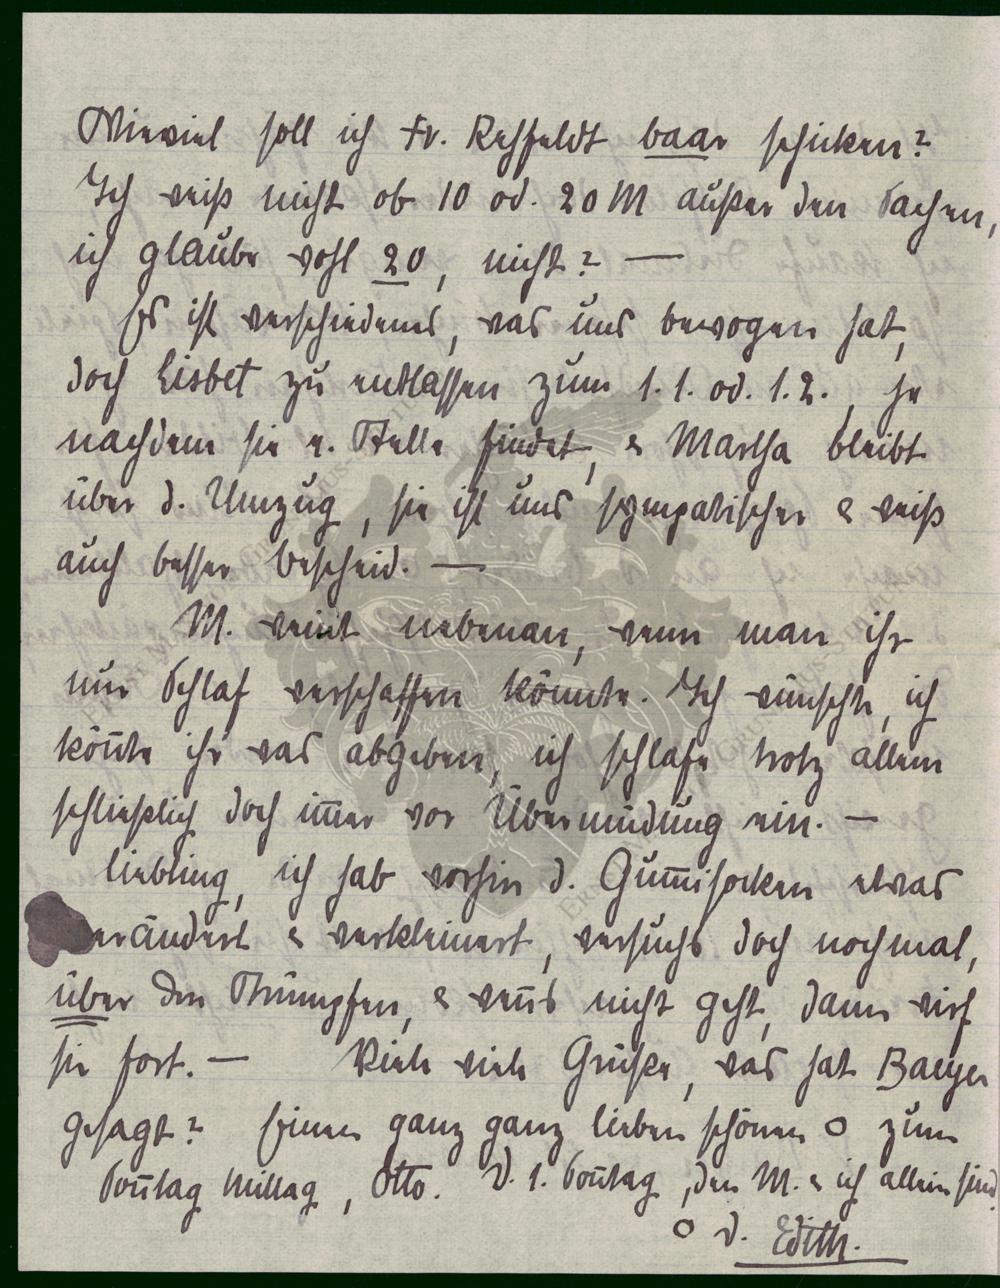 Wieviel soll ich Fr. Rehfeldt baar schicken?
Ich weiß nicht ob 10 od. 20 M außer den Sachen,
ich glaube wohl 20, nicht? —
Es ist verschiedenes, was uns bewogen hat,
doch Lisbet zu entlassen zum 1.1. od. 1.2., je
nachdem sie e. Stelle findet, & Martha bleibt
über d. Umzug, sie ist uns sympatischer & weiß
auch besser bescheid. —
M. weint nebenan, wenn man ihr
nur Schlaf verschaffen könnte. Ich wünschte, ich
kön̄te ihr was abgeben, ich schlafe trotz allem
schließlich doch im̄er vor Übermüdung ein. —
Liebling, ich hab vorhin d. Gum̄isocken etwas
verändert & verkleinert, versuchs doch nochmal,
über den Strümpfen, & wen̄s nicht geht, dann wirf
sie fort. — Viele viele Grüße, was hat Baeyer
gesagt? Einen ganz ganz lieben schönen O zum
Son̄tag Mittag, Otto. D. 1. Son̄tag, den M. & ich allein sind.
O D. Edith.